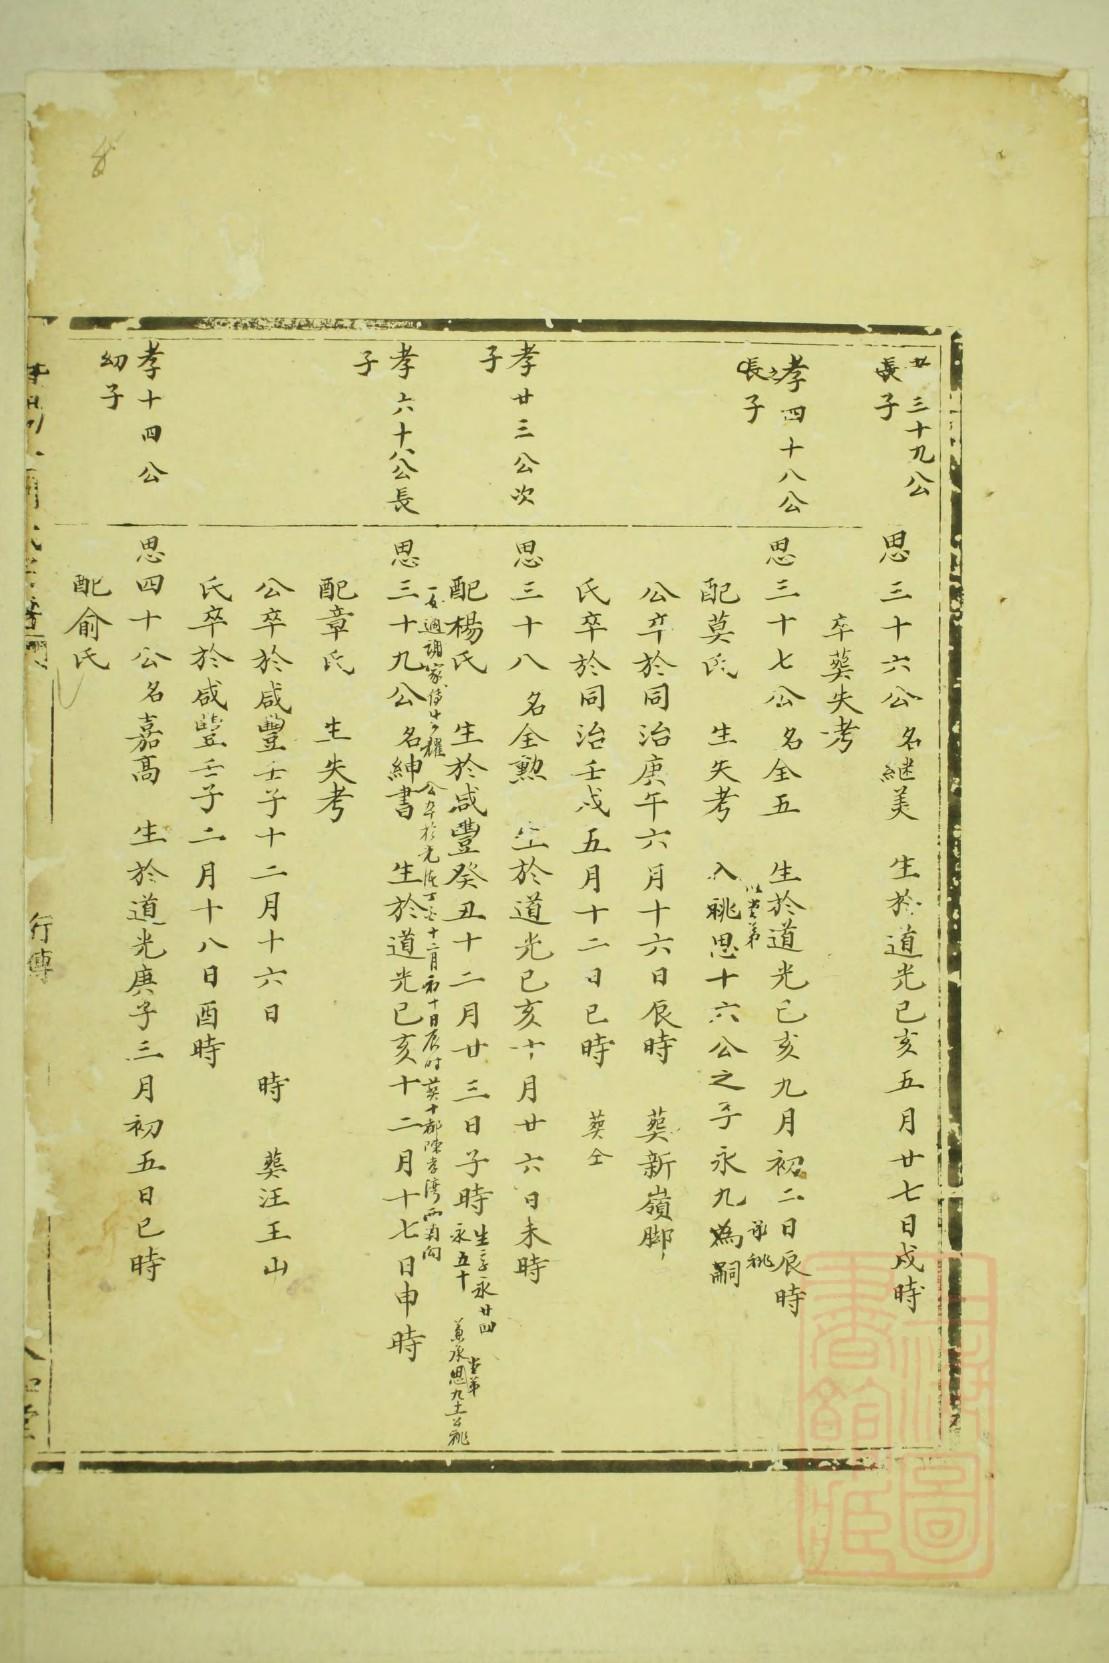 三十九公
長子
思三十六公 名継美 生於道光已亥五月廿七日戌時
卒葬失考
孝四十八公
之長子
思三十七公 名全五 生於道光已亥九月初二日辰時
配莫氏 生失考 入祧思十六公之子永九為嗣
承祧
公卒於同治庚午六月十六日辰時 葬新嶺脚
氏卒於同治壬戌五月十二日已時 葬仝
孝廿三公次
子
思三十八 名全勲 生於道光已亥十月廿六日未時
配楊氏 生於咸豐癸丑十二月廿三日子時 生子永廿四
永五十
兼承思九十公祧
公卒於光緒丁十二月初十日辰时葬十都陳李湾西南向
孝六十八公長
子
思三十九公 名紳書 生於道光已亥十二月十七日申時
配章氏 生失考
公卒於咸豐壬子十二月十六日 時 葬汪王山
氏卒於咸豐壬子二月十八日酉時
孝十四公
幼子
思四十公 名嘉高 生於道光庚子三月初五日已時
配俞氏
行傳
8